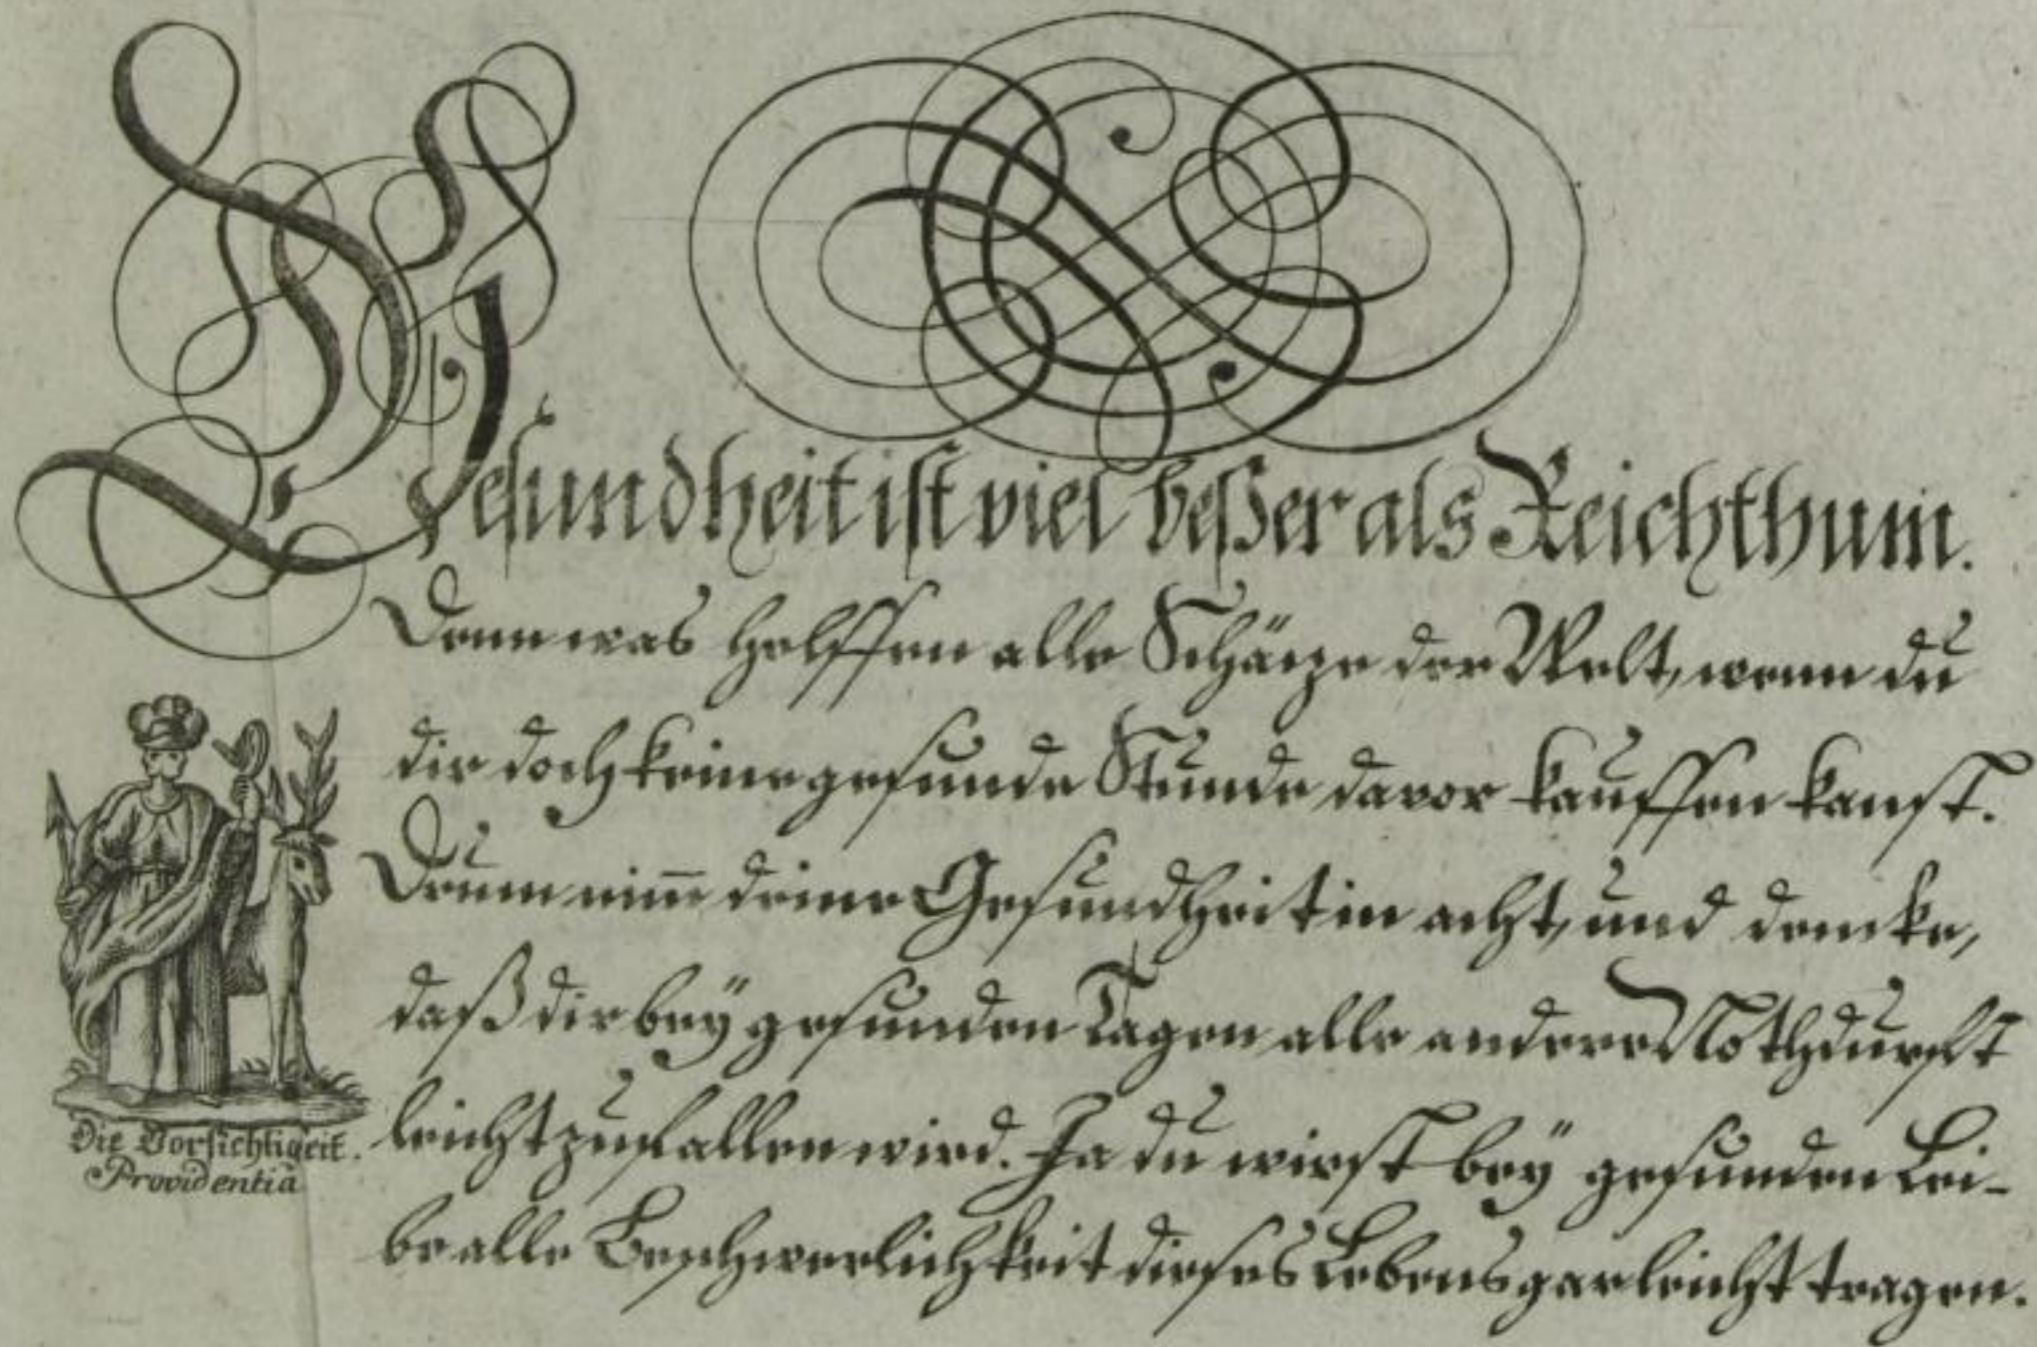 Gesundheit ist viel beßer als Reichthum.
Denn was helffen alle Schäze der Welt, wenn du
dir doch keine gesunde Stunde davor kauffen kanst.
Drum nim̄ deine Gesundheit in acht, und dencke,
daß dir beÿ gesunden Tagen alle andere Nothdurfft
leicht zufallen wird. Ja du wirst beÿ gesunden Lei-
be alle Beschwerlichkeit dieses Lebens gar leicht tragen.
Die Vorsichtigkeit.
Providentia